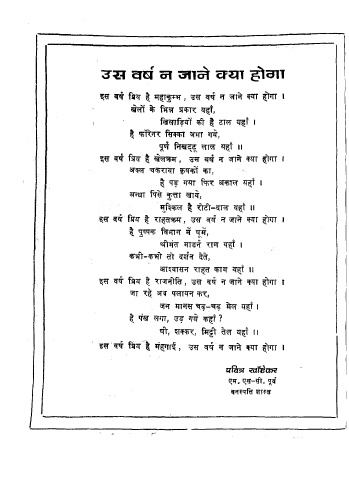 उस वर्ष न जाने क्या होगा
इस वर्ष प्रिय है महाकुम्भ, उस वर्ष न जाने क्या होगा ।
खेलों के भिन्न प्रकार यहाँ,
खिलाड़ियों की है टाल यहाँ ।
है फॉरेनर सिक्का जमा गये,
पूर्ण निखट्टू लाल यहाँ ॥
इस वर्ष प्रिय है खेलक्रम, उस वर्ष न जाने क्या होगा ।
अक्ल चकराया कृषकों का,
है पड़ गया फिर अकाल यहाँ ।
अन्धा पिसे कुत्ता खाये,
मुश्किल है रोटी-दाल यहाँ ॥
इस वर्ष प्रिय है राहतक्रम, उस वर्ष न जाने क्या होगा ।
है पुष्पक विमान में घूमें,
श्रीमंत माडर्न राम यहाँ ।
कभी-कभी तो दर्शन देते,
आश्वासन राहत काम यहाँ ॥
इस वर्ष प्रिय है राजनीति, उस वर्ष न जाने क्या होगा ।
जा रहे अब पलायन कर,
जन मानस चढ़-चढ़ मेल यहाँ ।
है पंख लगा, उड़ गये कहाँ ?
घी, शक्कर, मिट्टी तेल यहाँ ॥
इस वर्ष प्रिय है मंहगाई, उस वर्ष न जाने क्या होगा ।
पवित्र खाँडेकर
एम. एस-सी. पूर्व
वनस्पति शास्त्र